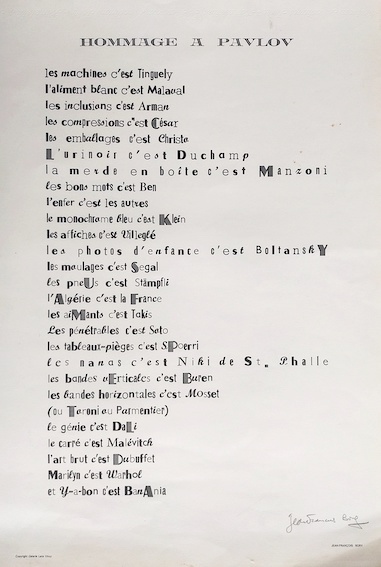 HOMMAGE A PAVLOV
les machines c'est Tinguely
l'aliment blanc c'est Malaval
les inclusions c'est Arman
les compressions c'est César
les emballages c'est Christo
L'urinoir c'est Duchamp
la merde en boîte c'est Manzoni
les bons mots c'est Ben
l'enfer c'est les autres
le monochrome bleu c'est Klein
les affiches c'est Villeglé
les photos d'enfance c'est BoltanskY
les moulages c'est Segal
les pneUs c'est Stämpfli
l'Algérie c'est la France
les aiMants c'est Takis
Les pénétrables c'est Soto
les tableaux-pièges c'est SPoerri
les nanas c'est Niki de St. Phalle
les bandes vErticales c'est Buren
les bandes horizontales c'est Mosset
(ou Toroni ou Parmentier)
le génie c'est DaLi
le carré c'est Malévitch
l'art brut c'est Dubuffet
Marilyn c'est Warhol
et Y-a-bon c'est BanAnia